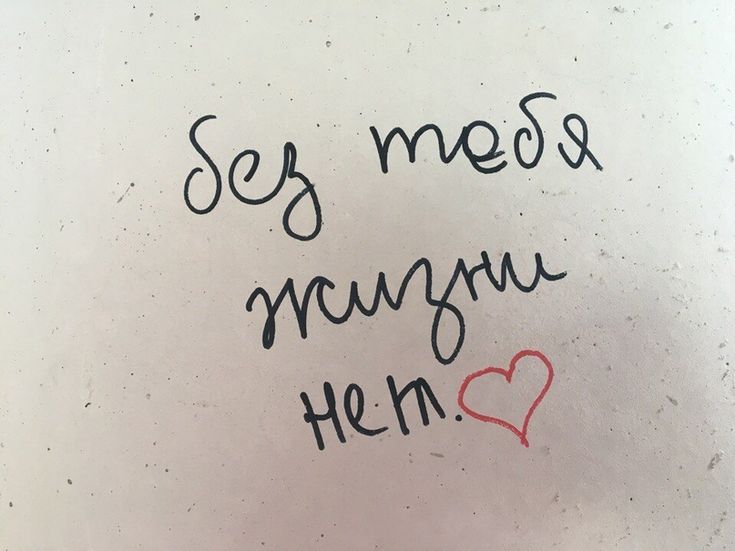 без тебя
жизни
нет.